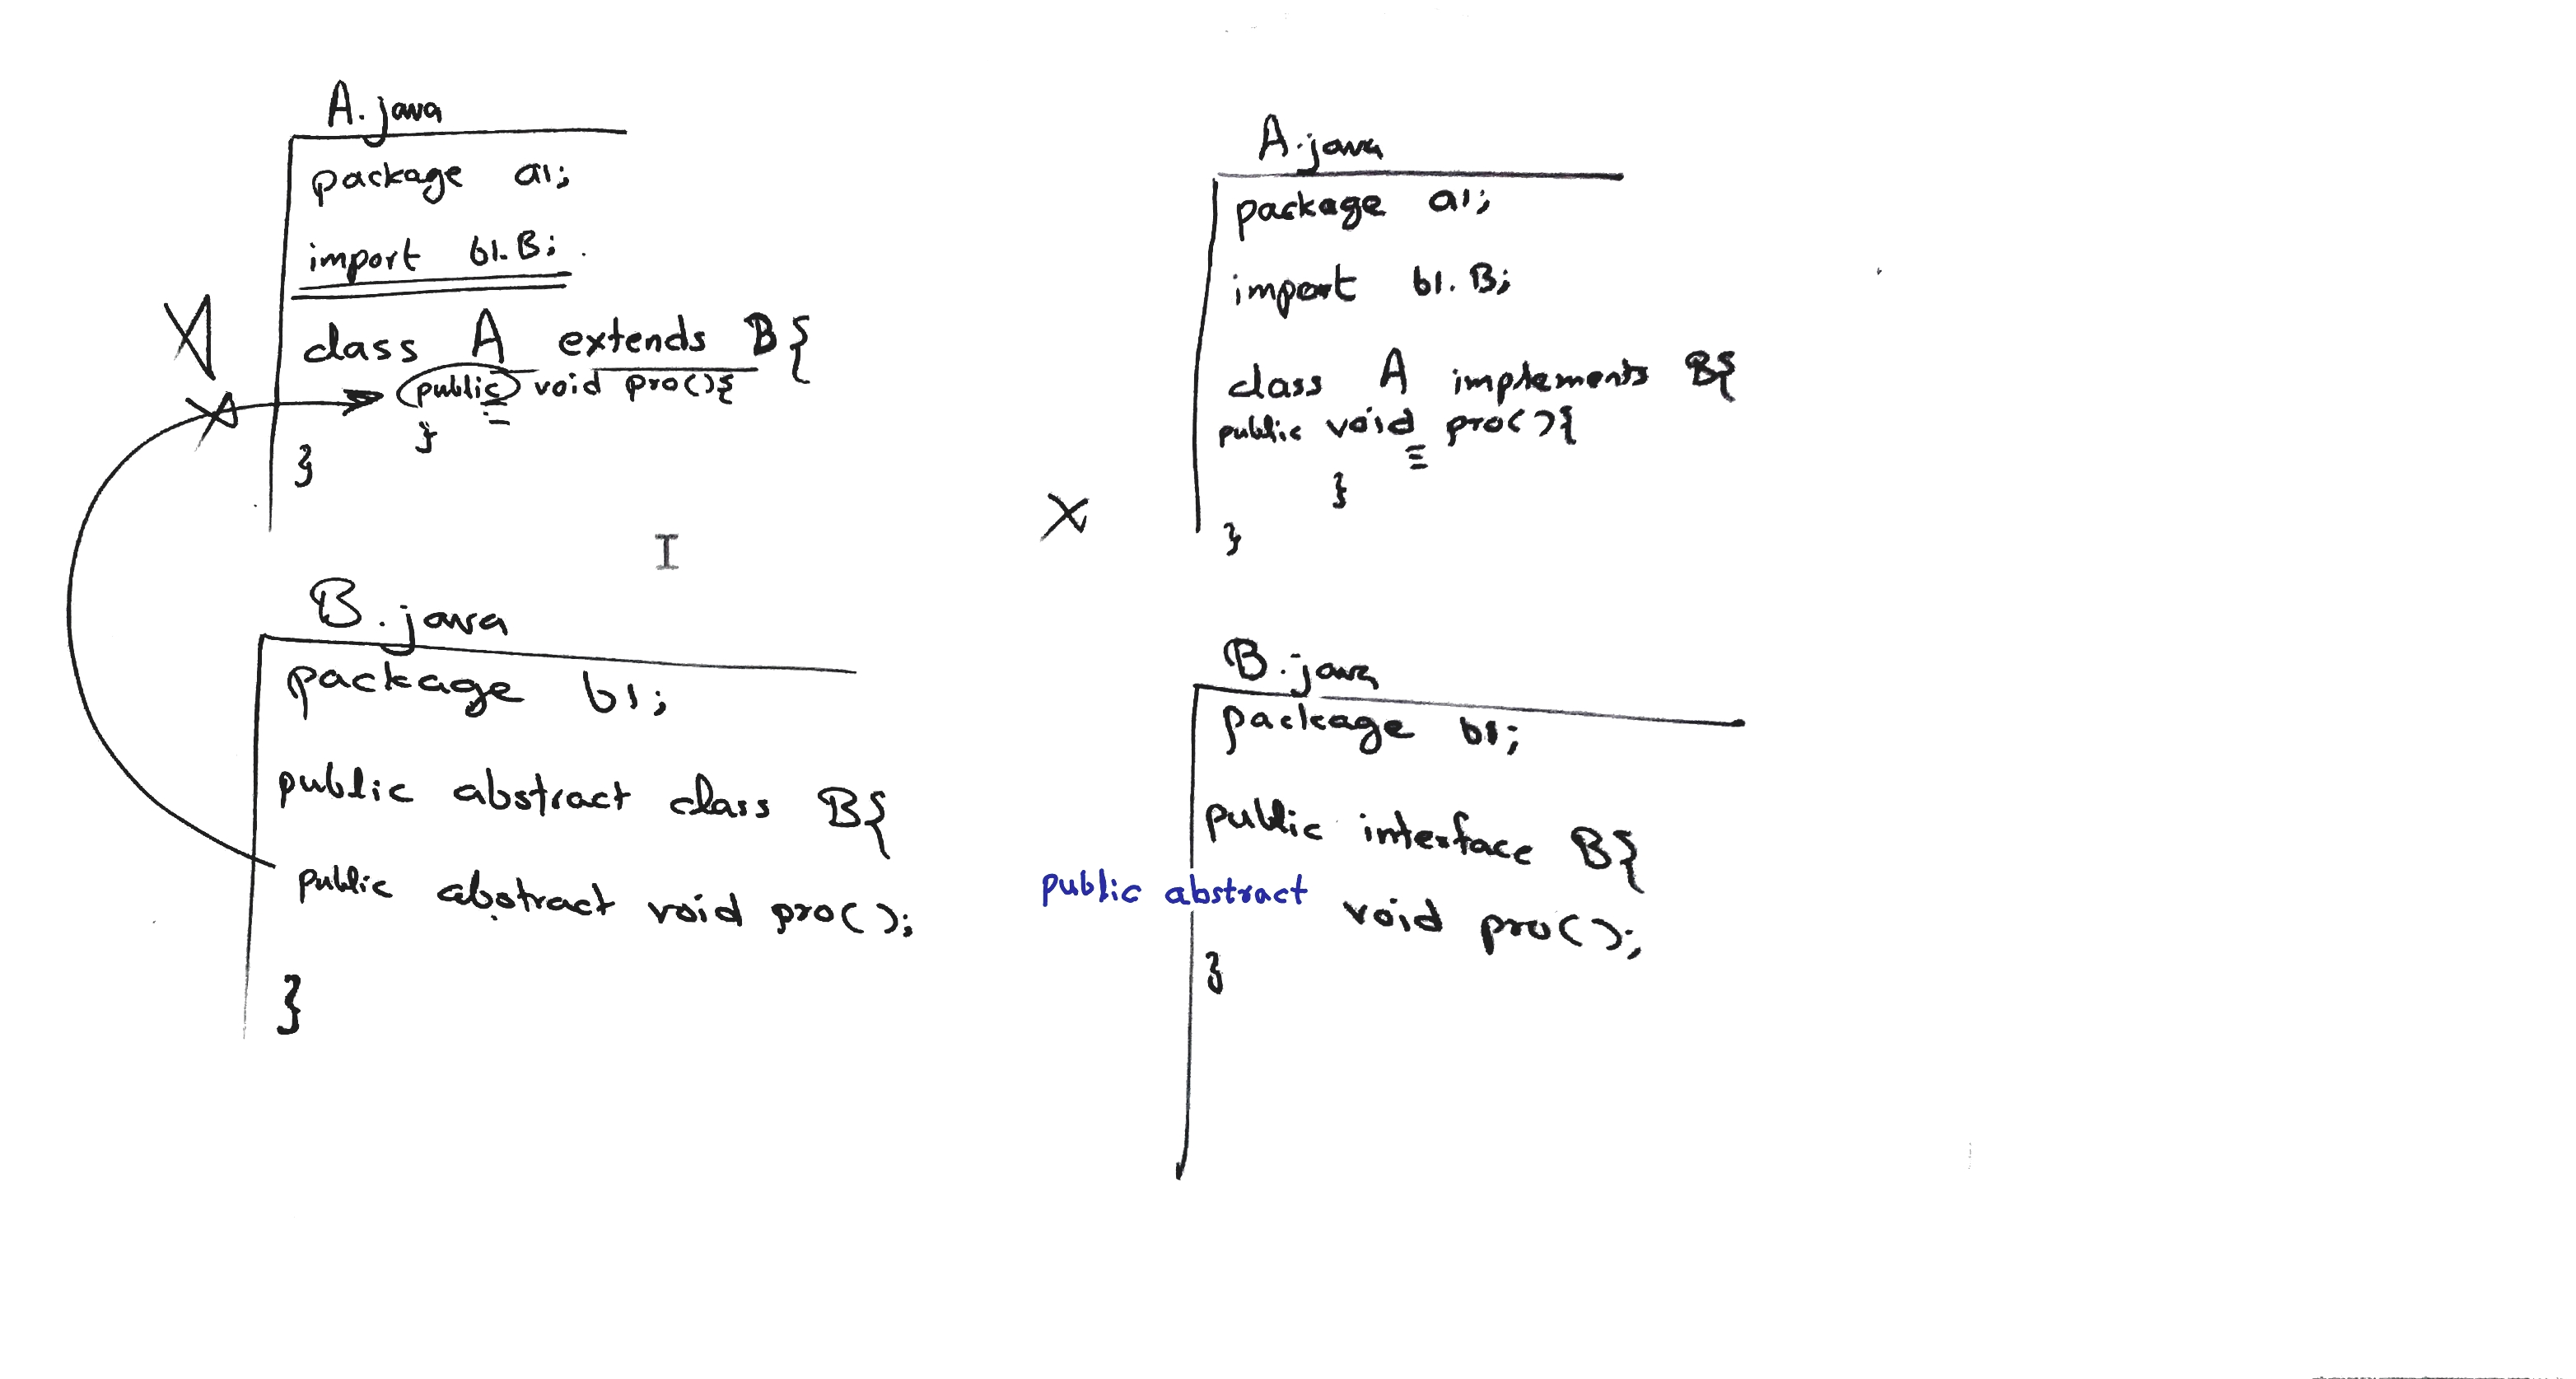 A.java
package a1;
import b1.B;
class A extends B{
public void pro(){
}
}
B.java
package b1;
public abstract class B{
public abstract void pro();
}
A.java
package a1;
import b1.B;
class A implements B{
public void pro(){
}
}
B.java
package b1;
public interface B{
public abstract void pro();
}